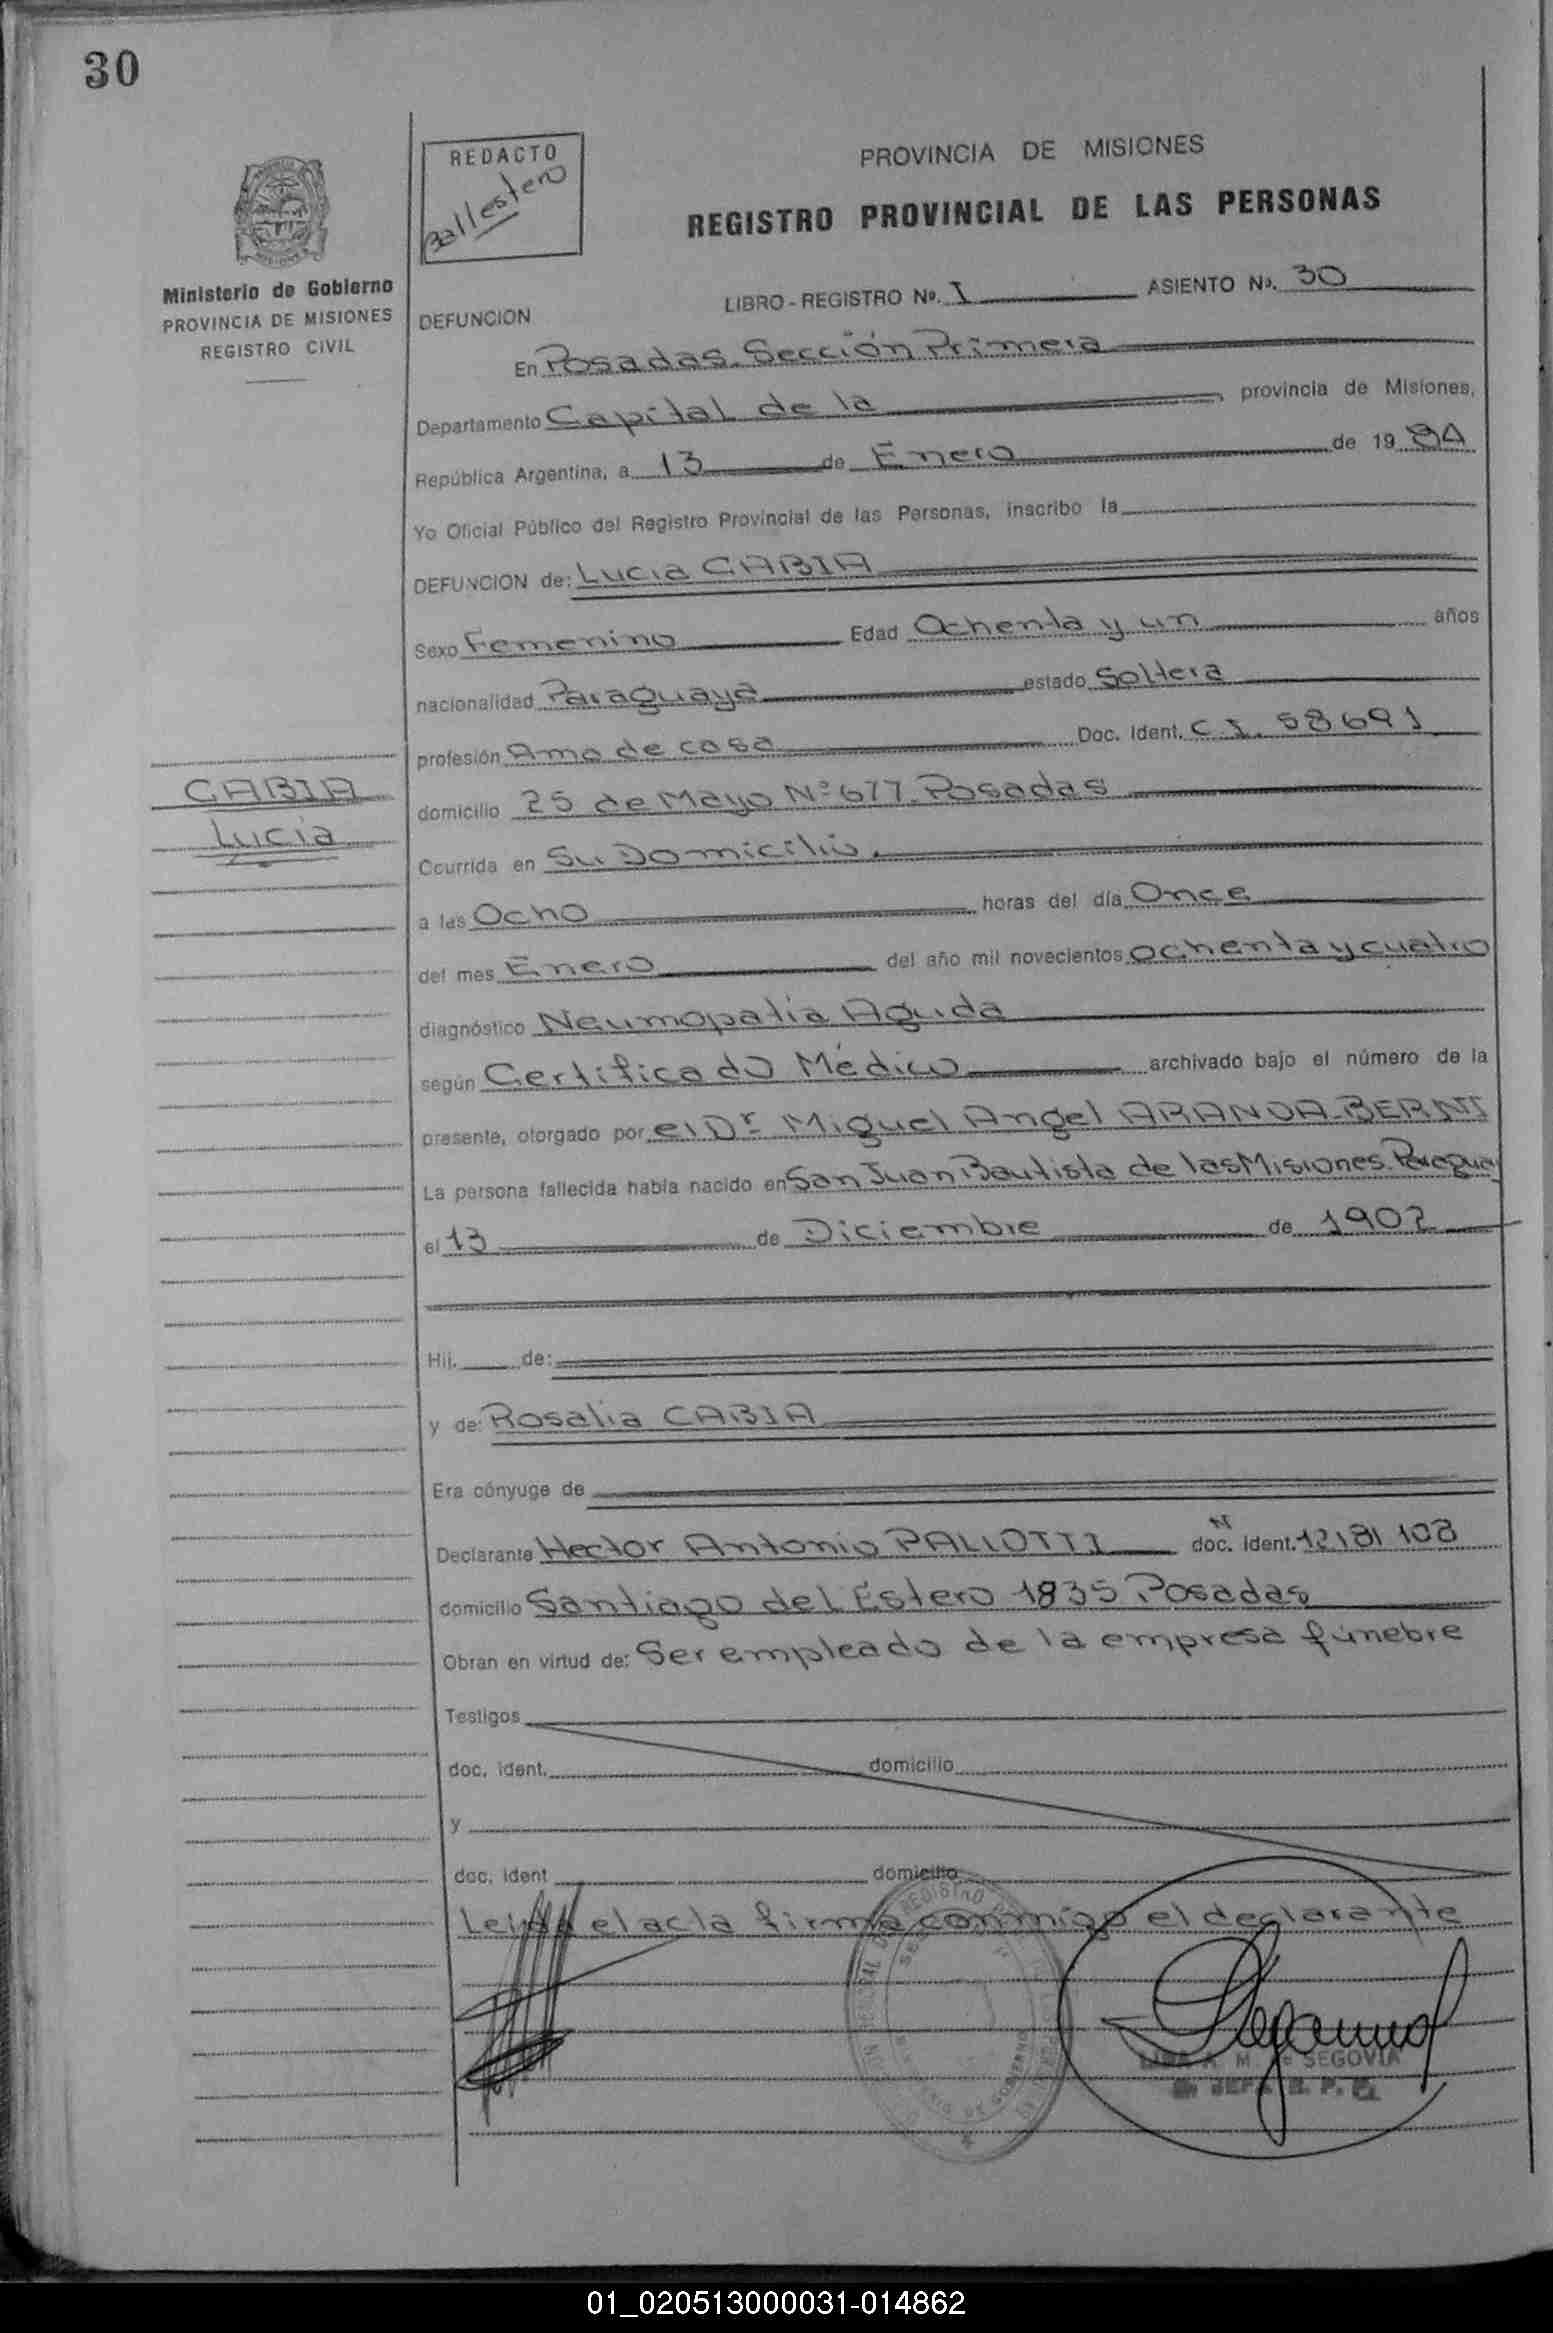 30
REDACTO
Ballestero
PROVINCIA DE MISIONES
REGISTRO PROVINCIAL DE LAS PERSONAS
Ministerio de Gobierno
PROVINCIA DE MISIONES
REGISTRO CIVIL
LIBRO - REGISTRO No. I ASIENTO No. 30
DEFUNCION
En Posadas. Sección Primera
Departamento Capital de la , provincia de Misiones,
República Argentina, a 13 de Enero de 19 84
Yo Oficial Público del Registro Provincial de las Personas, inscribo la
DEFUNCION de: Lucia CABIA
Sexo Femenino Edad Ochenta y un años
nacionalidad Paraguaya estado Soltera
profesión Ama de casa Doc. Ident. C.I. 58691
CABIA
Lucia
domicilio 25 de Mayo Nº 677. Posadas
Ocurrida en Su Domicilio.
a las Ocho horas del día Once
del mes Enero del año mil novecientos ochenta y cuatro
diagnóstico Neumopatia Aguda
según Certificado Médico archivado bajo el número de la
presente, otorgado por el Dr. Miguel Angel ARANDA-BERNI
La persona fallecida había nacido en San Juan Bautista de las Misiones. Paraguay
el 13 de Diciembre de 1902
Hij. de:
y de: Rosalia CABIA
Era cónyuge de
Declarante Hector Antonio PALLOTTI doc. ident. N 12181108
domicilio Santiago del Estero 1835 Posadas
Obran en virtud de: Ser empleado de la empresa fúnebre
Testigos
doc. ident. domicilio
y
doc. ident domicilio
Leida el acta firma conmigo el declarante
M. de SEGOVIA
JEFA R. P.
01_020513000031-014862